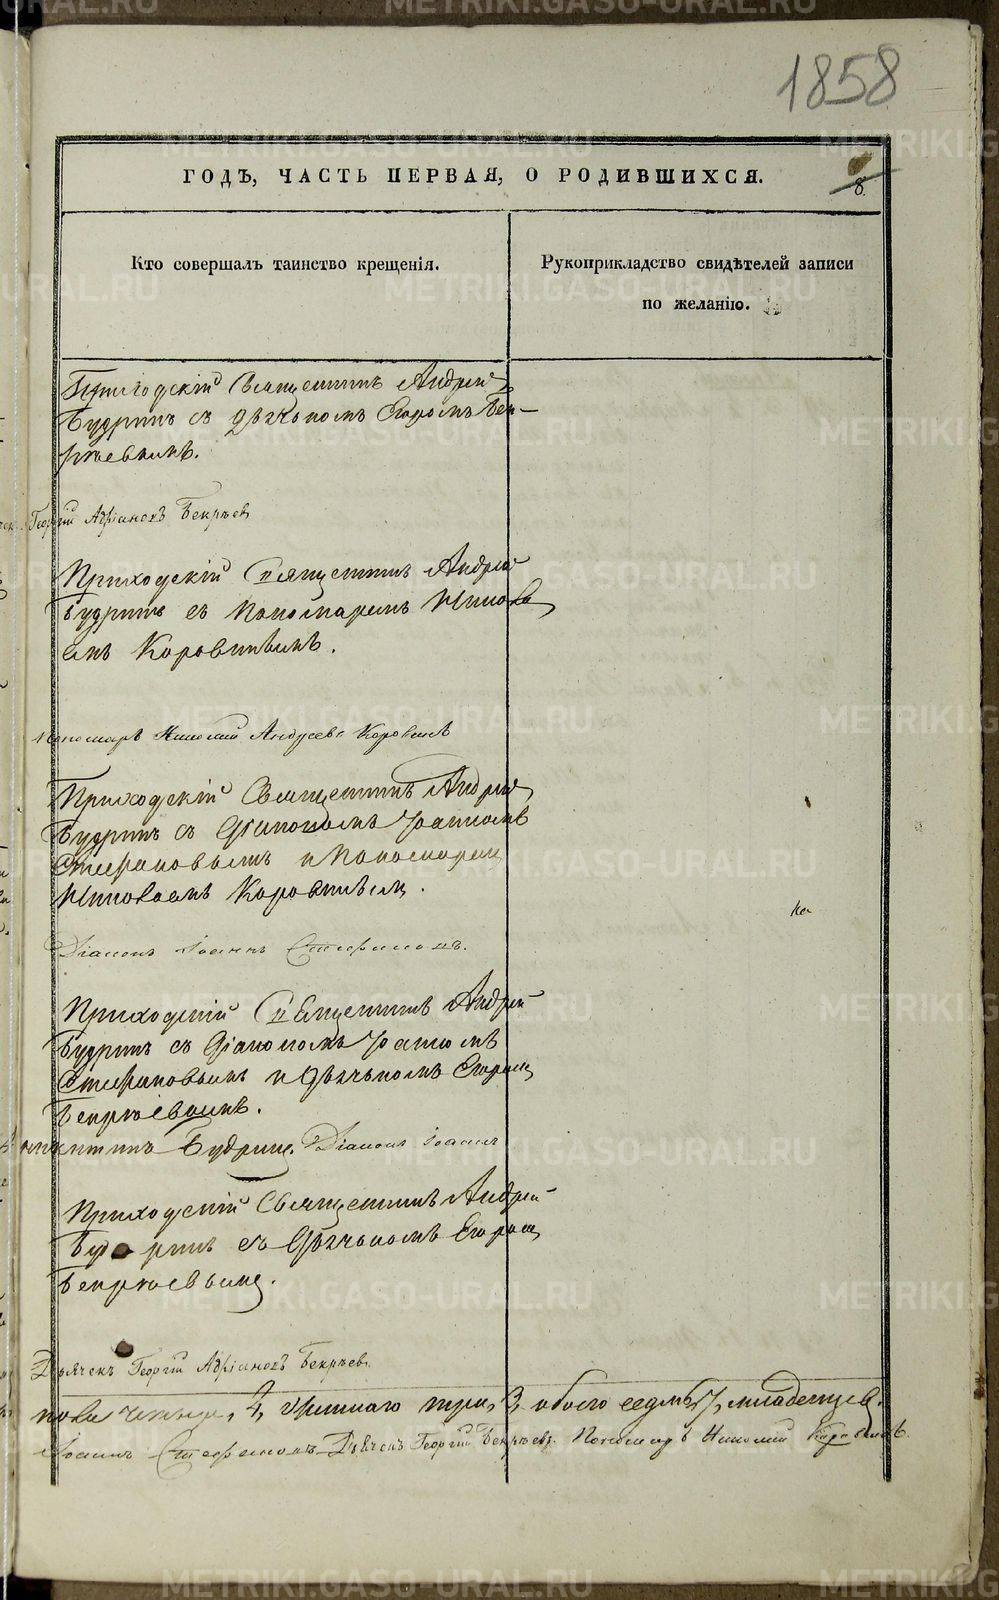 1858
ГОДЪ, ЧАСТЬ ПЕРВАЯ, О РОДИВШИХСЯ.
8.
Кто совершалъ таинство крещенія.
Рукоприкладство свидѣтелей записи
по желанію.
Приходскій Священникъ Андрей
Будринъ съ дьячькомъ Егоромъ Бек-
рѣевымъ.
Георгій Адріановъ Бекрѣевъ
Приходскій Священникъ Андрей
Будринъ съ Пономаремъ Никола
емъ Коровинымъ.
Пономарь Николай Андреевъ Коровинъ
Приходскій Священникъ Андрей
Будринъ съ Діакономъ Іоанномъ
Стефановымъ и Пономаремъ
Николаемъ Коровинымъ.
Діаконъ Іоаннъ Стефановъ.
Приходскій Священникъ Андрей
Будринъ съ Діакономъ Іоанномъ
Стефановымъ и Дьячькомъ Егоромъ
Бекрѣевымъ.
Будринъ. Діаконъ Іоаннъ
Приходскій Священникъ Андрей
Будринъ съ Дьячькомъ Егоромъ
Бекрѣевымъ.
Дьячекъ Георгій Адріановъ Бекрѣевъ
пола четыре, 4, женскаго три, 3, обоего седмь, 7, младенцевъ.
Іоаннъ Стефановъ Дьячекъ Георгій Бекрѣевъ. Пономарь Николай Коровинъ.
METRIKI.GASO-URAL.RU